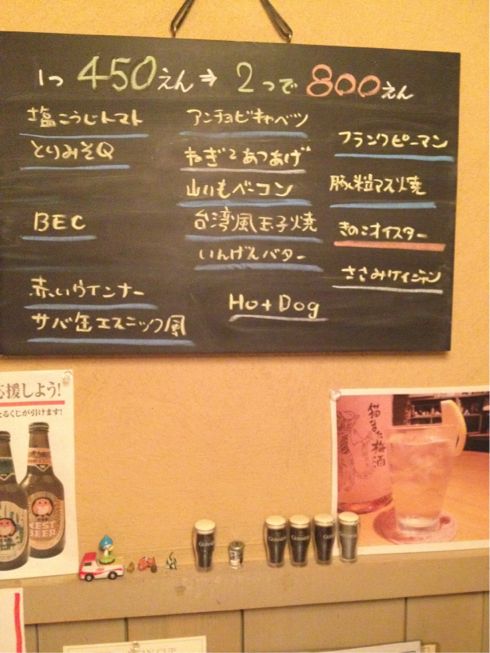 1つ 450えん⇒2つで 800えん
塩こうじトマト
とりみそQ
BEC
赤いウインナー
サバ缶エスニック風
アンチョビキャベツ
ねぎとあつあげ
山いもベーコン
台湾風玉子焼
いんげんバター
Hot Dog
フランクピーマン
豚粒マス焼
きのこオイスター
ささみケイジャン
応援しよう!
くじが引けます!
NEST
BEER
猫また梅酒
GUINNESS
GUINNESS
GUINNESS
GUINNESS
GUINNESS